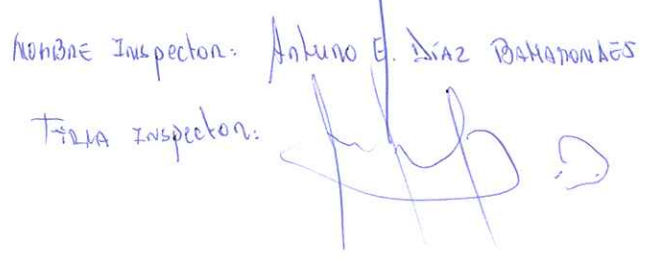 NOMBRE Inspector: Arturo E. Díaz BAHAMONDES
FIRMA Inspector: